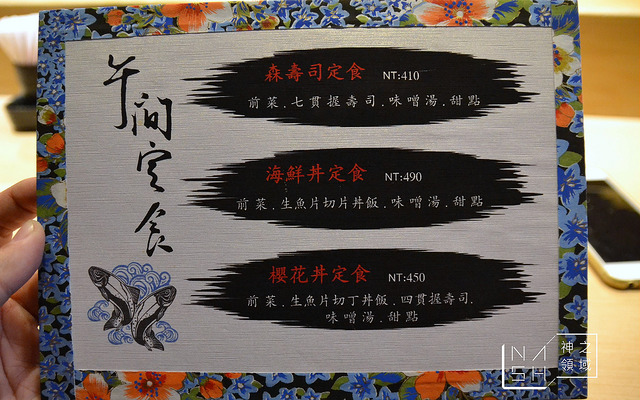 午間定食
森壽司定食 NT:410
前菜.七貫握壽司.味噌湯.甜點
海鮮丼定食 NT:490
前菜.生魚片切片丼飯.味噌湯.甜點
櫻花丼定食 NT:450
前菜.生魚片切丁丼飯.四貫握壽司.
味噌湯.甜點
NASH
神之領域